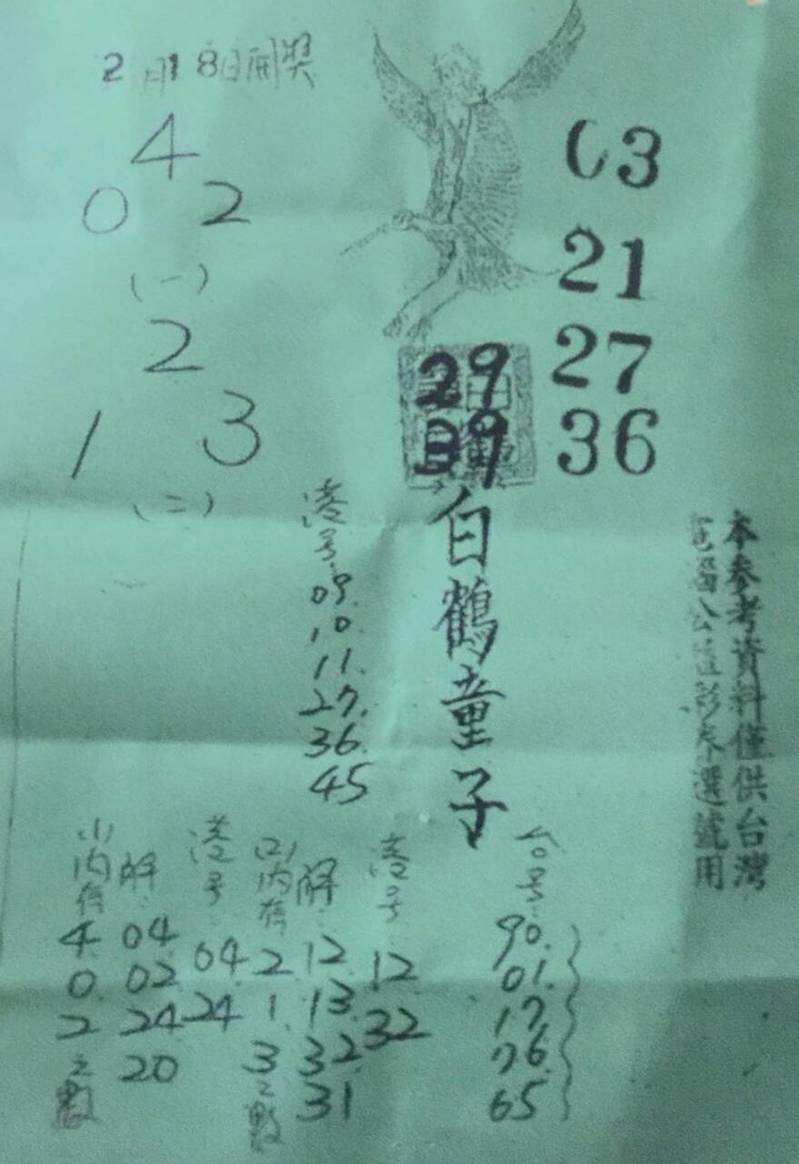 2月18日開獎
4
0 2
(一)
2
1 3
(二)
03
21
27
36
29
39
白鶴童子
本參考資料僅供台灣
電腦公益彩券選號用
港号:
09.
10.
11.
27.
36.
45
(一)內存
4
0
2
之數
解:
04
02
24
20
港号:
04
24
(二)內存
2
1
3
之數
解:
12
13
32
31
港号:
12
32
台号:
90.
01.
17
76
65